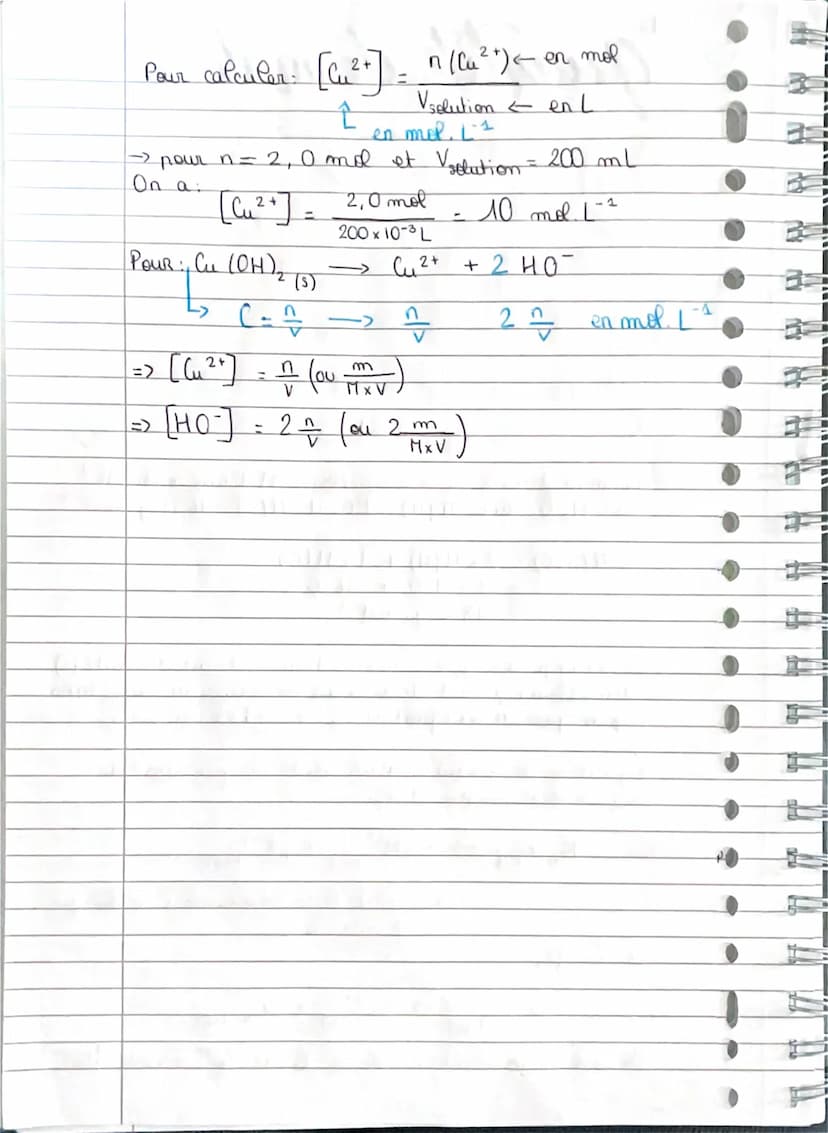 Pour calculer: [Cu²⁺] = n(Cu²⁺) ← en mol / Vsolution ← en L
en mol.L⁻¹
→ pour n = 2,0 mol et Vsolution = 200 mL
On a:
[Cu²⁺] = 2,0 mol / 200 x 10⁻³ L = 10 mol.L⁻¹
POUR: Cu(OH)₂ (s) → Cu²⁺ + 2 HO⁻
C = n/V → n/V 2 n/V en mol.L⁻¹
=> [Cu²⁺] = n/V (ou m/M x V)
=> [HO⁻] = 2 n/V (ou 2 m/M x V)